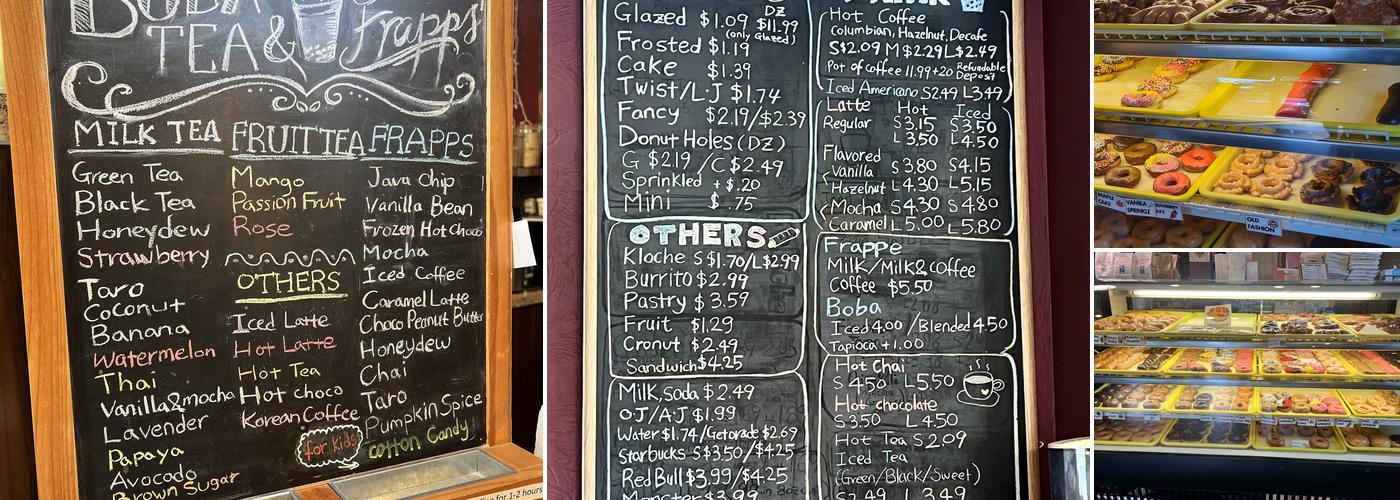 BOBA
TEA & Frapps
MILK TEA
Green Tea
Black Tea
Honeydew
Strawberry
Taro
Coconut
Banana
Watermelon
Thai
Vanilla&mocha
Lavender
Papaya
Avocado
Brown Sugar
FRUIT TEA
Mango
Passion Fruit
Rose
OTHERS
Iced Latte
Hot Latte
Hot Tea
Hot choco
Korean Coffee
for kids
FRAPPS
Java Chip
Vanilla Bean
Frozen Hot choco
Mocha
Iced Coffee
Caramel Latte
Choco Peanut Butter
Honeydew
Chai
Taro
Pumpkin Spice
cotton Candy!
for 1-2 hours
DZ
Glazed $1.09 $11.99
(only Glazed)
Frosted $1.19
Cake $1.39
Twist/L.J $1.74
Fancy $2.19/$2.39
Donut Holes (DZ)
G $2.19 / C $2.49
Sprinkled +$.20
Mini $.75
OTHERS
Kloche S $1.70/L$2.99
Burrito $2.99
Pastry $3.59
Fruit $1.29
Cronut $2.49
Sandwich $4.25
Milk, Soda $2.49
OJ/A.J $1.99
Water $1.74/Gatorade $2.69
Starbucks S $3.50/$4.25
Red Bull $3.99/$4.25
Monster $3.99
Hot Coffee
Columbian, Hazelnut, Decafe
S$2.09 M$2.29 L$2.49
Pot of coffee 11.99+20 Refundable Deposit
Iced Americano S2.49 L3.49
Latte Hot Iced
Regular S 3.15 S 3.50
L 3.50 L 4.50
Flavored
Vanilla S 3.80 S 4.15
Hazelnut L 4.30 L 5.15
Mocha S 4.30 S 4.80
Caramel L 5.00 L 5.80
Frappe
Milk/Milk&coffee
Coffee $5.50
Boba
Iced 4.00 / Blended 4.50
Tapioca +1.00
Hot Chai
S 4.50 L 5.50
Hot chocolate
S 3.50 L 4.50
Hot Tea S 2.09
Iced Tea
(Green/Black/Sweet)
S 2.49 L 3.49
MAPLE CAKE
VANILLA SPRINKLE
OLD FASHION